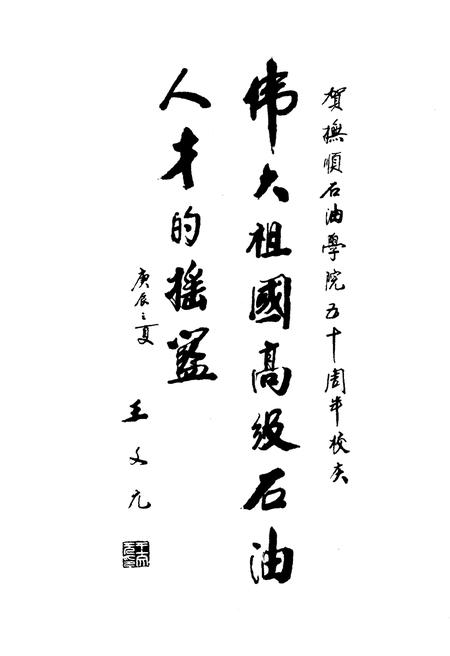 賀撫順石油學院五十周年校庆
伟大祖國高级石油
人才的摇篮
庚辰之夏
王文元